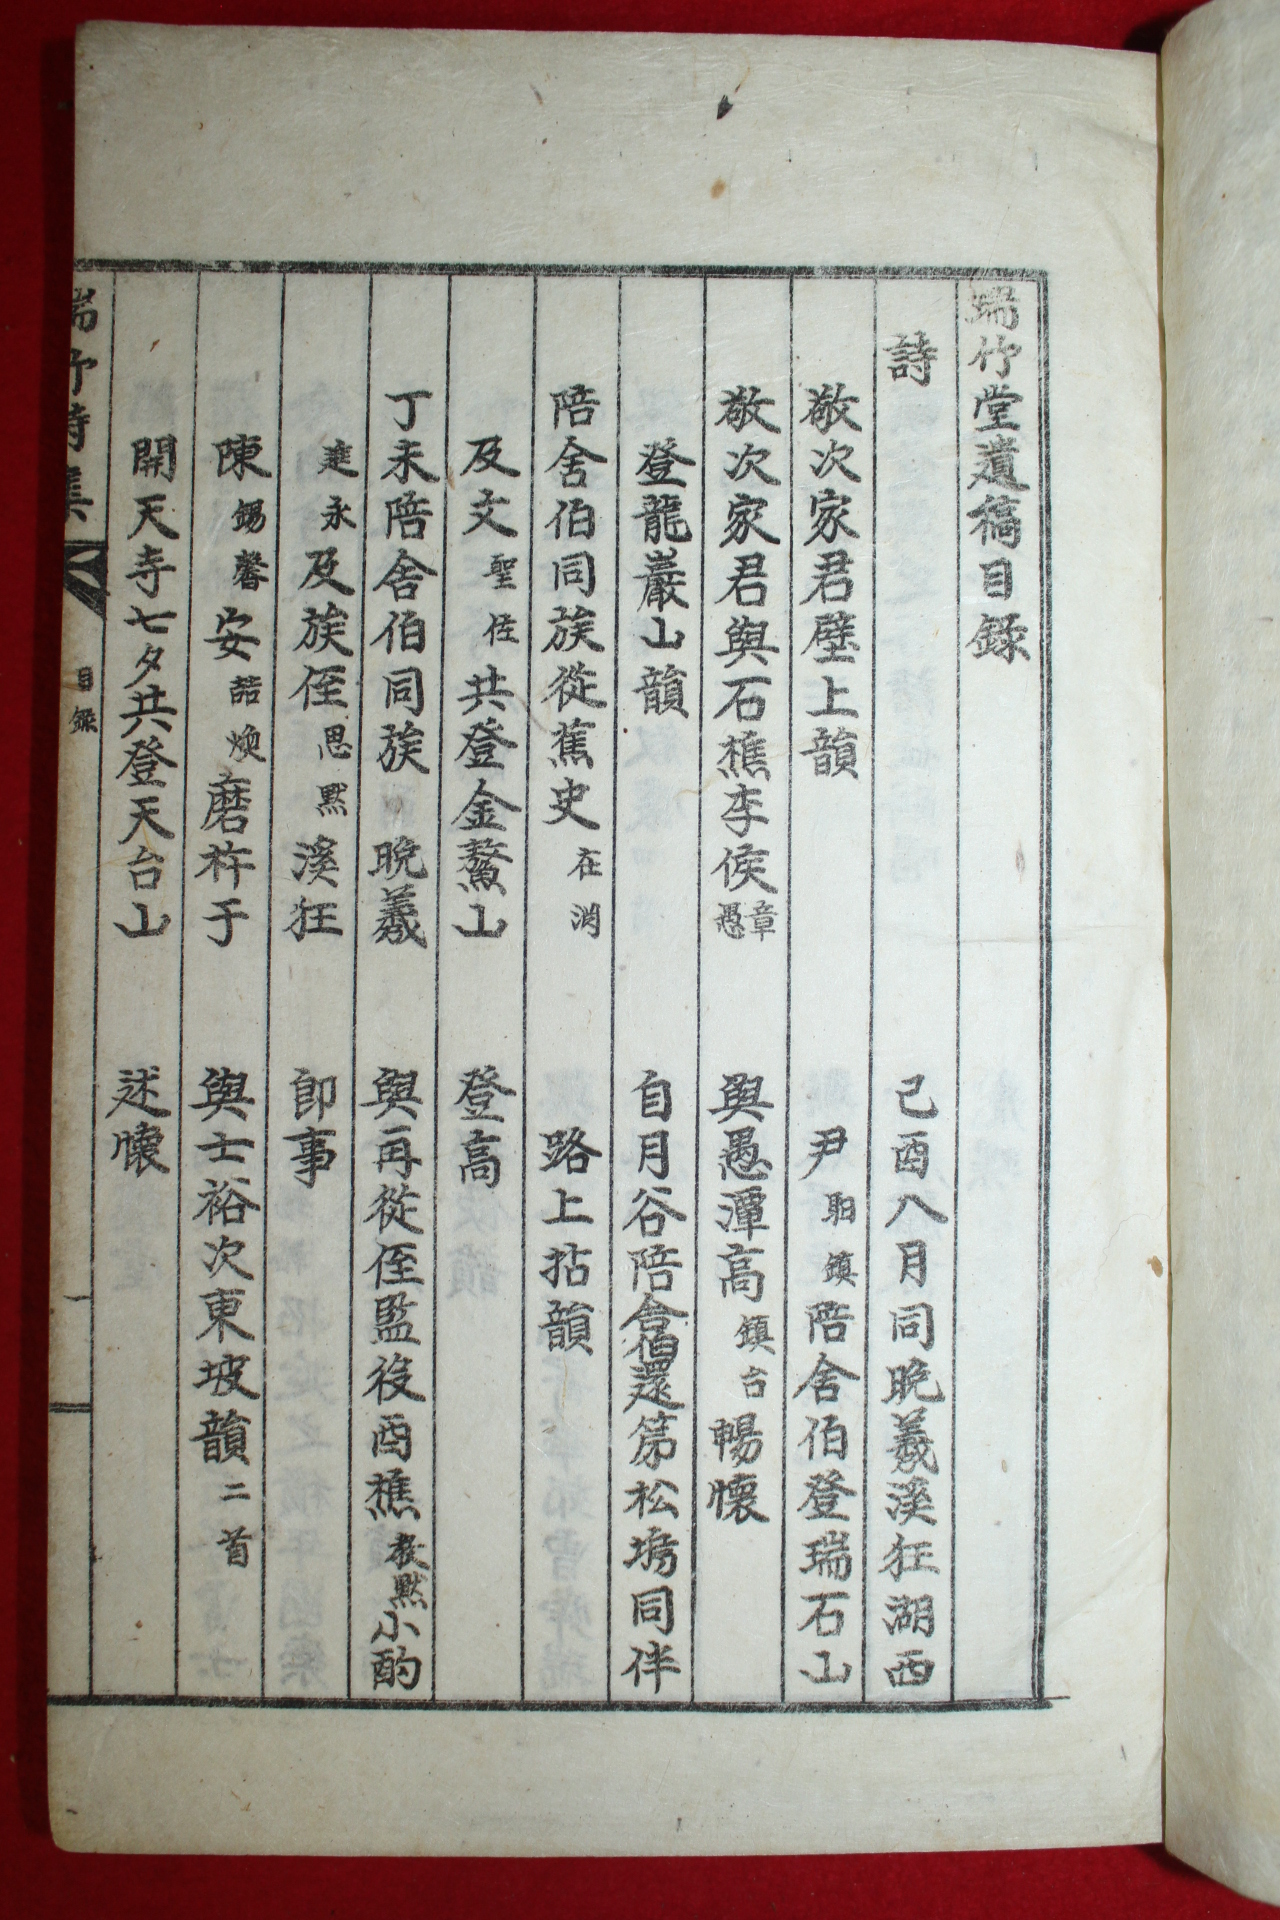 瑞竹堂遺稿目錄
詩 己酉八月同晩羲溪狂湖西
敬次家君壁上韻 尹 鎮陪舍伯登瑞石山
敬次家君與石樵李侯章愚 與愚潭高鎮台暢懷
登龍巖山韻 自月谷陪舍伯還第松塢同伴
陪舍伯同族從蕉史在 路上拈韻
及文聖佐共登金鰲山 登高
丁未陪舍伯同族 晩羲 與再從侄監役酉樵教默小酌
永及族侄思默溪狂 即事
陳錫馨安喆煥磨杵于 與士裕次東坡韻二首
開天寺七夕共登天台山 述懷
瑞竹詩集 目錄 一